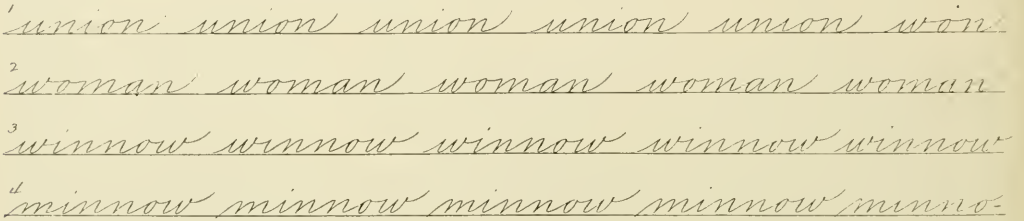 1 union union union union union won
2 woman woman woman woman woman
3 winnow winnow winnow winnow winnow
4 minnow minnow minnow minnow minno-